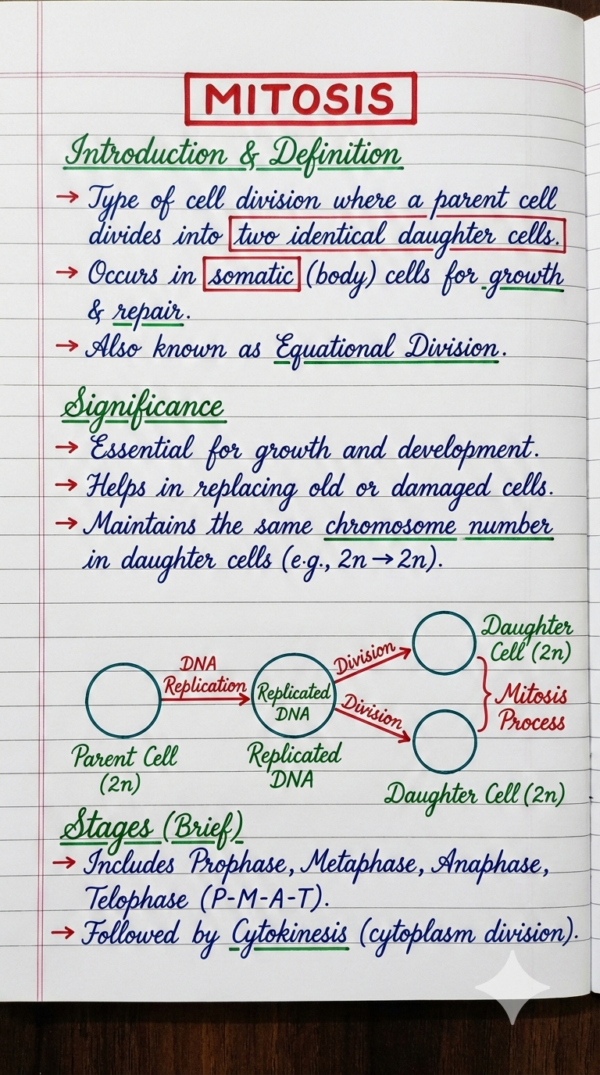 MITOSIS
Introduction & Definition
→ Type of cell division where a parent cell
divides into two identical daughter cells.
→ Occurs in somatic (body) cells for growth
& repair.
→ Also known as Equational Division.
Significance
→ Essential for growth and development.
→ Helps in replacing old or damaged cells.
→ Maintains the same chromosome number
in daughter cells (e.g., 2n → 2n).
DNA
Replication
Parent Cell
(2n)
Replicated
DNA
Replicated
DNA
Division
Division
Daughter
Cell (2n)
Mitosis
Process
Daughter Cell (2n)
Stages (Brief)
→ Includes Prophase, Metaphase, Anaphase,
Telophase (P-M-A-T).
→ Followed by Cytokinesis (cytoplasm division).